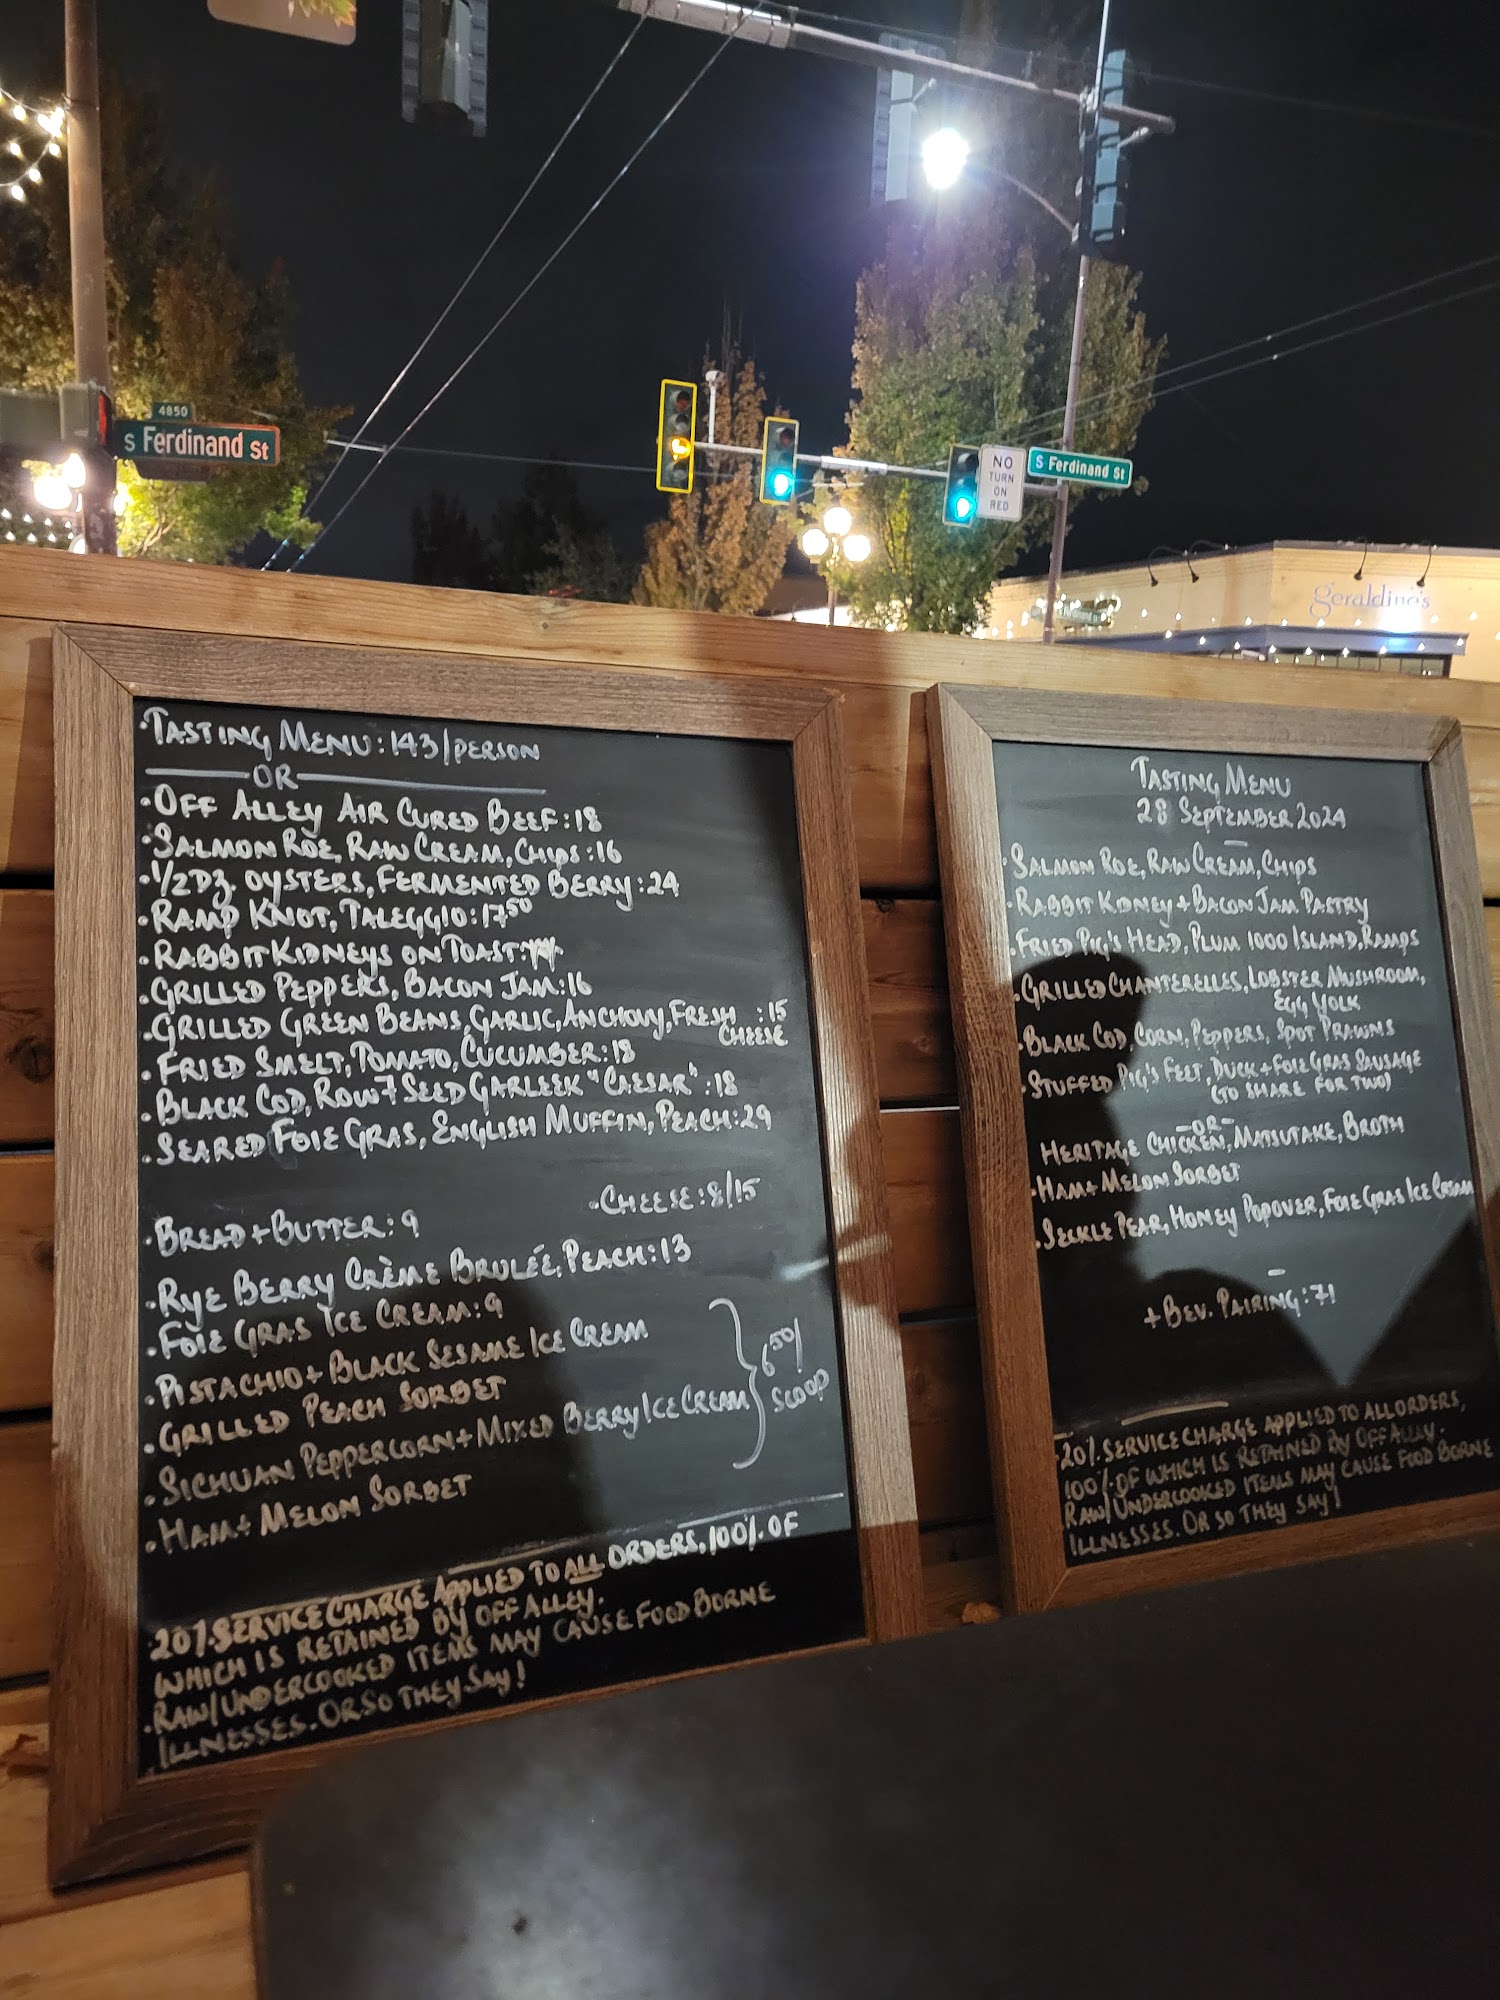 4850
S Ferdinand St
NO
TURN
ON
RED
S Ferdinand St
geraldine's
·TASTING MENU: 143/PERSON
OR
·OFF ALLEY AIR CURED BEEF: 18
·SALMON ROE, RAW CREAM, CHIPS: 16
·1/2 DZ. OYSTERS, FERMENTED BERRY: 24
·RAMP KNOT, TALEGGIO: 17⁵⁰
·RABBIT KIDNEYS ON TOAST:
·GRILLED PEPPERS, BACON JAM: 16
·GRILLED GREEN BEANS, GARLIC, ANCHOVY, FRESH CHEESE: 15
·FRIED SMELT, TOMATO, CUCUMBER: 18
·BLACK COD, ROW 7 SEED GARLEEK "CAESAR": 18
·SEARED FOIE GRAS, ENGLISH MUFFIN, PEACH: 29
·CHEESE: 8/15
·BREAD + BUTTER: 9
·RYE BERRY CRÈME BRULÉE, PEACH: 13
·FOIE GRAS ICE CREAM: 9
·PISTACHIO + BLACK SESAME ICE CREAM
·GRILLED PEACH SORBET
·SICHUAN PEPPERCORN + MIXED BERRY ICE CREAM
·HAM + MELON SORBET
6⁵⁰/
SCOOP
·20% SERVICE CHARGE APPLIED TO ALL ORDERS, 100% OF
WHICH IS RETAINED BY OFF ALLEY.
·RAW/UNDERCOOKED ITEMS MAY CAUSE FOOD BORNE
ILLNESSES. OR SO THEY SAY!
TASTING MENU
28 SEPTEMBER 2024
·SALMON ROE, RAW CREAM, CHIPS
·RABBIT KIDNEY + BACON JAM PASTRY
·FRIED PIG'S HEAD, PLUM 1000 ISLAND, RAMPS
·GRILLED CHANTERELLES, LOBSTER MUSHROOM,
EGG YOLK
·BLACK COD, CORN, PEPPERS, SPOT PRAWNS
·STUFFED PIG'S FEET, DUCK + FOIE GRAS SAUSAGE
(TO SHARE FOR TWO)
-OR-
HERITAGE CHICKEN, MATSUTAKE, BROTH
·HAM + MELON SORBET
·SECKLE PEAR, HONEY POPOVER, FOIE GRAS ICE CREAM
+ BEV. PAIRING: 71
·20% SERVICE CHARGE APPLIED TO ALL ORDERS,
100% OF WHICH IS RETAINED BY OFF ALLEY.
RAW/UNDERCOOKED ITEMS MAY CAUSE FOOD BORNE
ILLNESSES. OR SO THEY SAY!